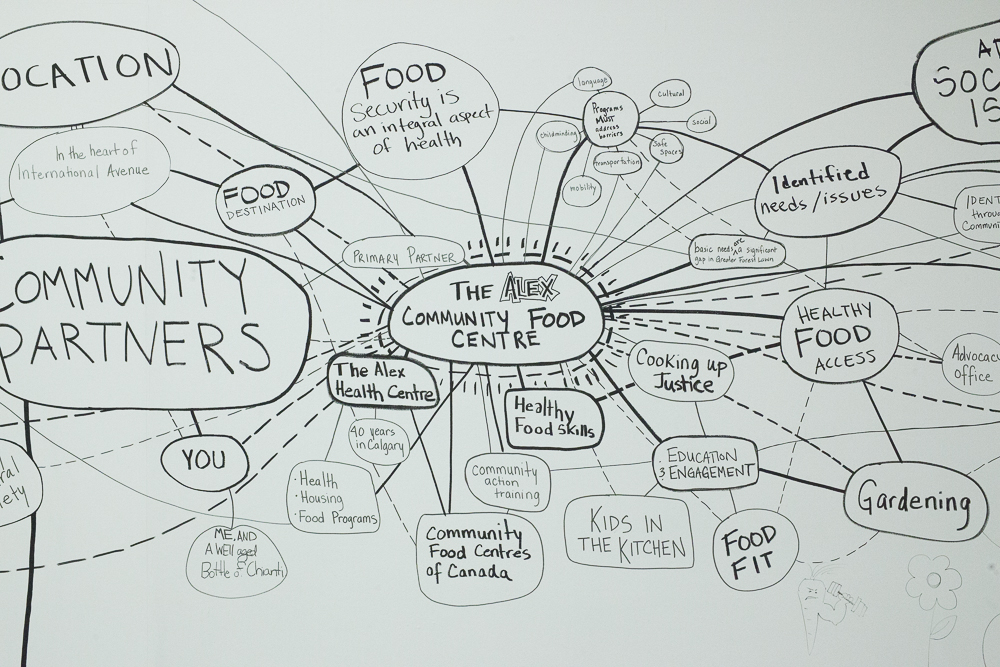 OCATION
In the heart of
International Avenue
FOOD
DESTINATION
FOOD
Security is
an integral aspect
of health
language
cultural
social
Programs
MUST
address
barriers
childminding
Safe
Spaces
transportation
mobility
SOC
IS
Identified
needs/issues
IDENT
throu
Communi
basic needs are significant
gap in Greater Forest Lawn
PRIMARY PARTNER
COMMUNITY
PARTNERS
THE ALEX
COMMUNITY FOOD
CENTRE
HEALTHY
FOOD
ACCESS
Advocacy
office
The Alex
Health Centre
Cooking up
Justice
Healthy
Food Skills
40 years
in Calgary
YOU
· Health
· Housing
· Food Programs
Community
action
training
EDUCATION
& ENGAGEMENT
Gardening
ral
iety
ME, AND
A WEll aged
Bottle of Chianti
Community
Food Centres
of Canada
KIDS IN
THE KITCHEN
FOOD
FIT